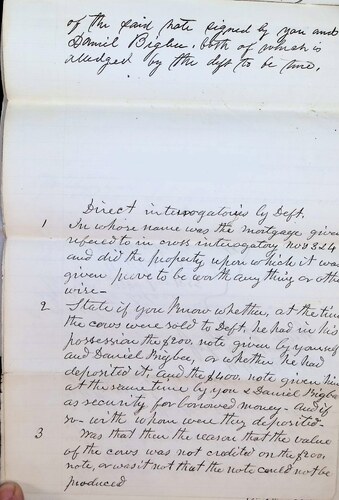 of the said note signed by you and
Daniel Bigbee, both of which is
alledged by the deft to be true.
Direct interrogatories by Deft.
1 In whose name was the mortgage given
refered to in cross interogatory no 23 & 24
and did the property upon which it was
given prove to be worth any thing or other
wise—
2 State if you know whether, at the time
the cows were sold to Deft. he had in his
possession the $200. note given by yourself
and Daniel Bigbee, or whether he had
deposited it, and the $400. note given him
at the same time by you & Daniel Bigbee
as security for borrowed money— and if
so— with whom were they deposited—
3 Was that then the reason that the value
of the cows was not credited on the $200.
note, or was it not that the note could not be
produced